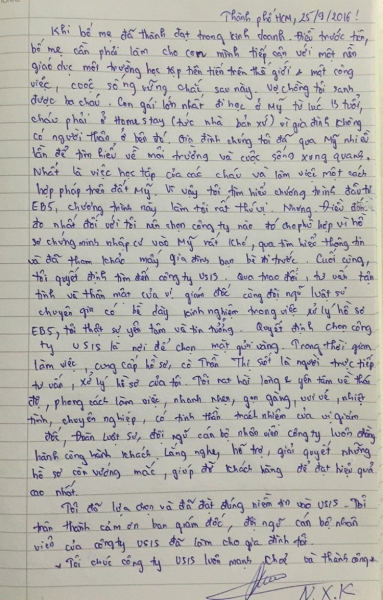 Thành phố HCM, 25/9/2016!
Khi bố mẹ đã thành đạt trong kinh doanh. Điều trước tiên,
bố mẹ cần phải làm cho con mình tiếp cận với một nền
giáo dục môi trường học tập tiên tiến trên thế giới & một công
việc, cuộc sống vững chắc sau này. Vợ chồng tôi sanh
được ba cháu. Con gái lớn nhất đi học ở Mỹ từ lúc 15 tuổi,
cháu phải ở Homestay (tức nhà bản xứ) vì gia đình không
có người thân ở bên đó. Gia đình chúng tôi đã qua Mỹ nhiều
lần để tìm hiểu về môi trường và cuộc sống xung quang.
Nhất là việc học tập của các cháu và làm việc một cách
hợp pháp trên đất Mỹ. Vì vậy tôi tìm hiểu chương trình đầu tư
EB5, chương trình này làm tôi rất thú vị. Nhưng điều đắn
đo nhất đối với tôi nên chọn công ty nào để cho phù hợp vì hồ
sơ chứng minh nhập cư vào Mỹ rất khó, qua tìm hiểu thông tin
và đã tham khảo mấy gia đình bạn bè đi trước. Cuối cùng,
tôi quyết định tìm đến công ty USIS. Qua trao đổi, tư vấn tận
tình và thân mật của vị giám đốc cùng đội ngũ luật sư
chuyên gia có bề dày kinh nghiệm trong việc xử lý hồ sơ
EB5, tôi thật sự yên tâm và tin tưởng. Quyết định chọn công
ty USIS là nơi để chọn mặt gửi vàng. Trong thời gian
làm việc, cung cấp hồ sơ, cô Trần Thị Sởi là người trực tiếp
tư vấn, xử lý hồ sơ của tôi. Tôi rất hài lòng & yên tâm về thái
độ, phong cách làm việc, nhanh nhẹn, gọn gàng, vui vẻ, nhiệt
tình, chuyên nghiệp, có tinh thần trách nhiệm của vị giám
đốc, đoàn luật sư, đội ngũ cán bộ nhân viên công ty luôn đồng
hành cùng khách. Lắng nghe, hỗ trợ, giải quyết những
hồ sơ còn vướng mắc, giúp đỡ khách hàng để đạt hiệu quả
cao nhất.
Tôi đã lựa chọn và đã đặt đúng niềm tin vào USIS. Tôi
trân thành cảm ơn ban giám đốc, đội ngũ cán bộ nhân
viên của công ty USIS đã làm cho gia đình tôi.
Tôi chúc công ty USIS luôn mạnh và thành công.
N.X.K